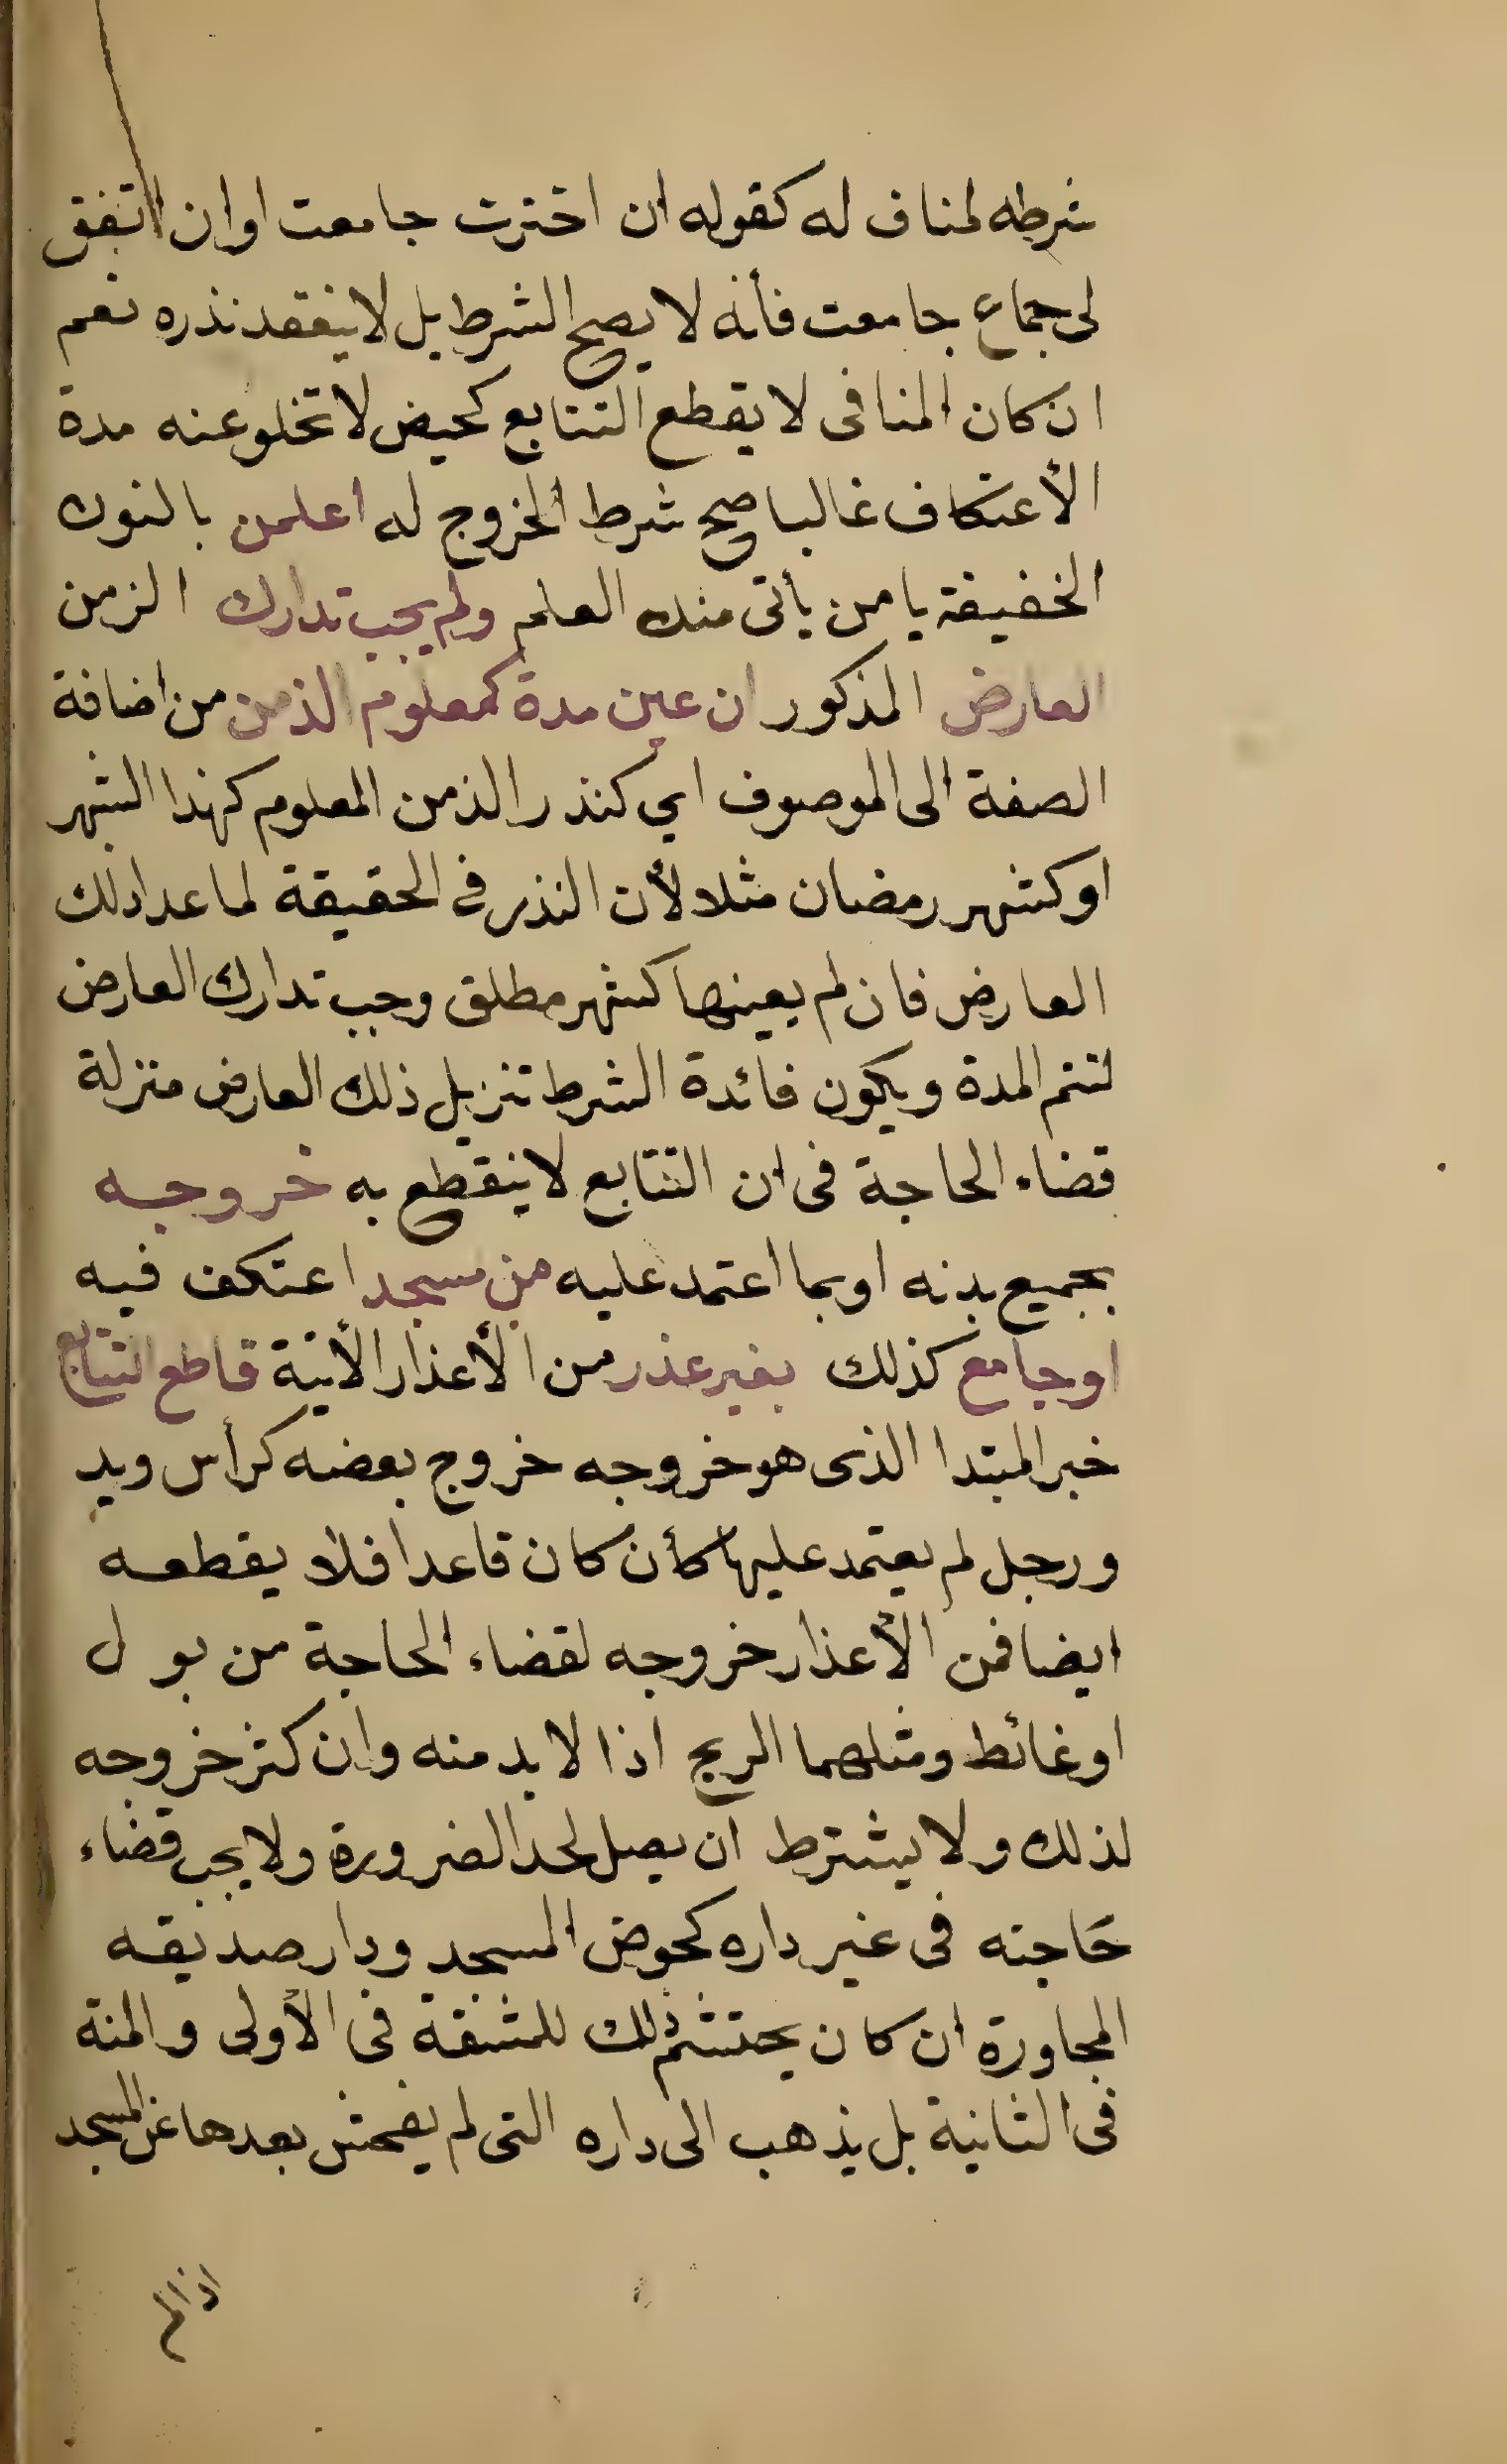 شرطه لمناف له كقوله ان اخترت جامعت او ان اتفق
لى جماع جامعت فأنه لا يصح الشرط بل لا ينعقد نذره نعم
ان كان المنافى لا يقطع التتابع كحيض لا تخلو عنه مدة
الأعتكاف غالبا صح شرط الخروج له اعلمن بالنون
الخفيفة يا من يأتى منك العلم ولم يجب تدارك الزمن
العارض المذكور ان عين مدة كمعلوم الذمن من اضافة
الصفة الى الموصوف اي كنذر الذمن المعلوم كهذا الشهر
او كشهر رمضان مثلا لأن النذر فى الحقيقة لما عدا ذلك
العارض فان لم يعينها كشهر مطلق وجب تدارك العارض
لتتم المدة ويكون فائدة الشرط تنزيل ذلك العارض منزلة
قضاء الحاجة فى ان التتابع لا ينقطع به خروجه
بجميع بدنه او بما اعتمد عليه من مسجد اعتكف فيه
او جامع كذلك بغير عذر من الأعذار الأتية قاطع التتابع
خبر المبتدا الذى هو خروجه خروج بعضه كرأس ويد
ورجل لم يعتمد عليها كأن كان قاعدا فلا يقطعه
ايضا فمن الأعذار خروجه لقضاء الحاجة من بول
او غائط ومثلهما الريح اذا لا بد منه وان كثر خروجه
لذلك ولا يشترط ان يصل لحد الضرورة ولا يجب قضاء
حَاجته فى غير داره كحوض المسجد ودار صديقه
المجاورة ان كان يحتشم ذلك للمشقة فى الأولى والمنة
فى الثانية بل يذهب الى داره التى لم يفحش بعدها عن المسجد
اذا لم